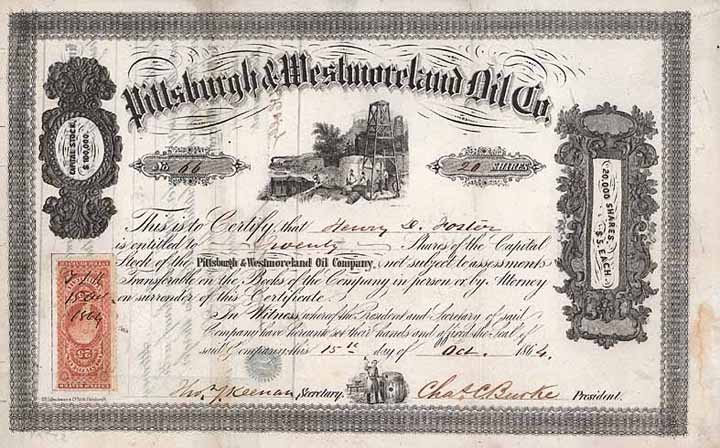 Pittsburgh & Westmoreland Oil Co.
CAPITAL STOCK
$100,000.
No 66
20 SHARES
20,000 SHARES
$5 EACH
This is to Certify, that Henry D. Foster
is entitled to Twenty Shares of the Capital
Stock of the Pittsburgh & Westmoreland Oil Company, not subject to assessments
Transferable on the Books of the Company in person or by Attorney
on surrender of this Certificate.
In Witness, whereof the President and Secretary of said
Company have hereunto set their hands and affixed the Seal of
said Company, this 15th day of Oct. 1864.
Secretary.
Chas. C. Burke President.
25
1864